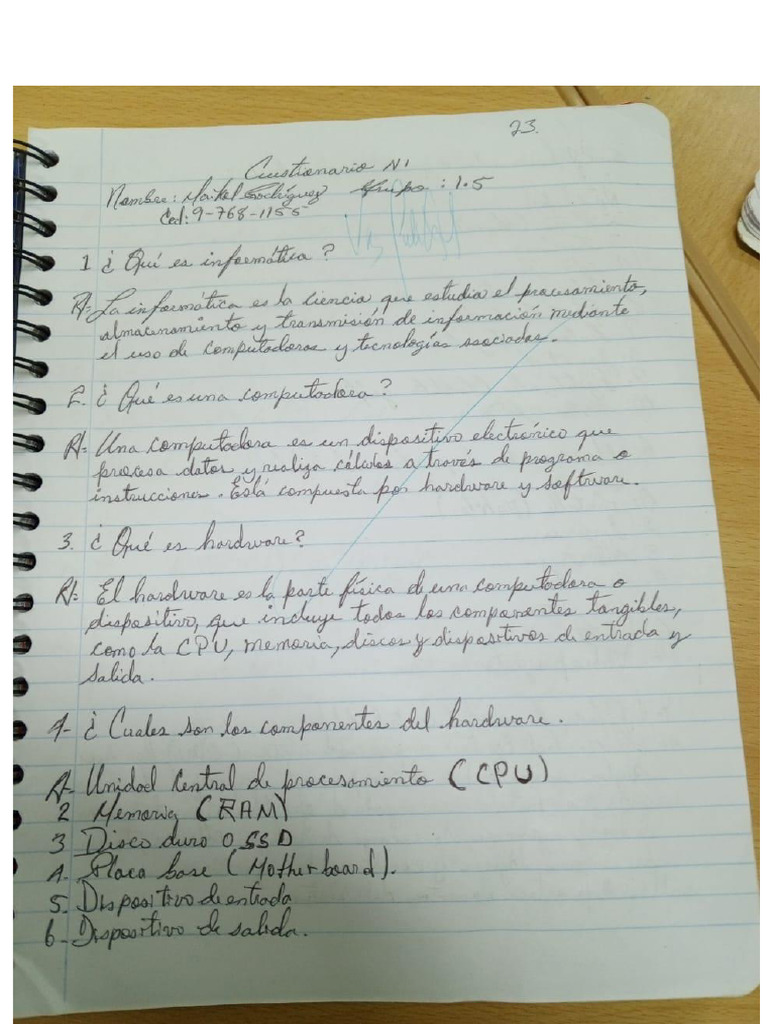 23.
Cuestionario N1
Nombre: Maikol Rodríguez Grupo: 1.5
Ced: 9-768-1155
1 ¿ Qué es informática?
R/= La informática es la ciencia que estudia el procesamiento,
almacenamiento y transmisión de información mediante
el uso de computadoras y tecnologías asociadas.
2. ¿ Qué es una computadora?
R/= Una computadora es un dispositivo electrónico que
procesa datos y realiza cálculos a través de programa o
instrucciones. Está compuesta por hardware y software.
3. ¿ Qué es hardware?
R/= El hardware es la parte física de una computadora o
dispositivo, que incluye todos los componentes tangibles,
como la CPU, memoria, discos y dispositivos de entrada y
salida.
4- ¿ Cuales son los componentes del hardware.
R/- Unidad Central de procesamiento (CPU)
2 Memoria (RAM)
3 Disco duro O SSD
4. Placa base (Motherboard).
5. Dispositivo de entrada
6- Dispositivo de salida.